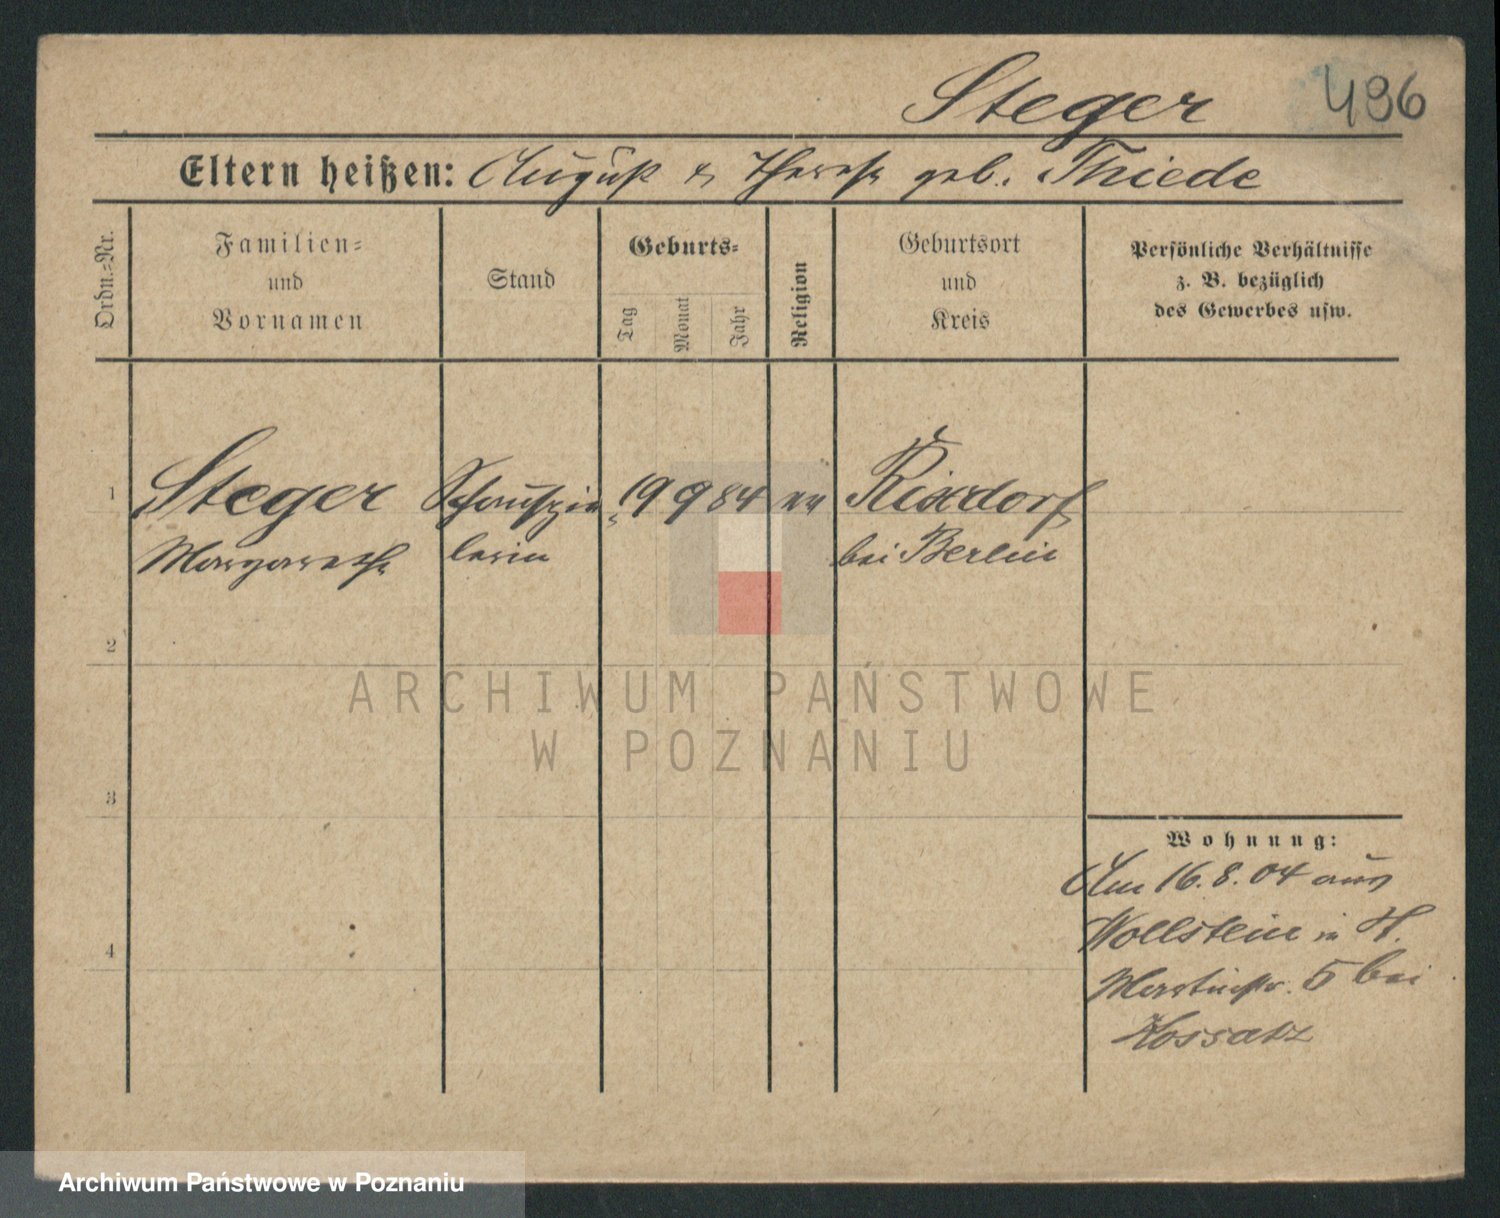 Steger 496
Eltern heißen: August & Therese geb. Thiede
Ordn.-Nr.
Familien-
und
Vornamen
Stand
Geburts-
Tag
Monat
Jahr
Religion
Geburtsort
und
Kreis
Persönliche Verhältnisse
z. B. bezüglich
des Gewerbes usw.
1 Steger Schauspie 19 9 84 ev Rixdorf
Margarethe lerin bei Berlin
2
3
4
Wohnung:
Am 16.8.04 aus
Wollstein in H.
Martinstr. 5 bei
Kossatz
ARCHIWUM PAŃSTWOWE
W POZNANIU
Archiwum Państwowe w Poznaniu